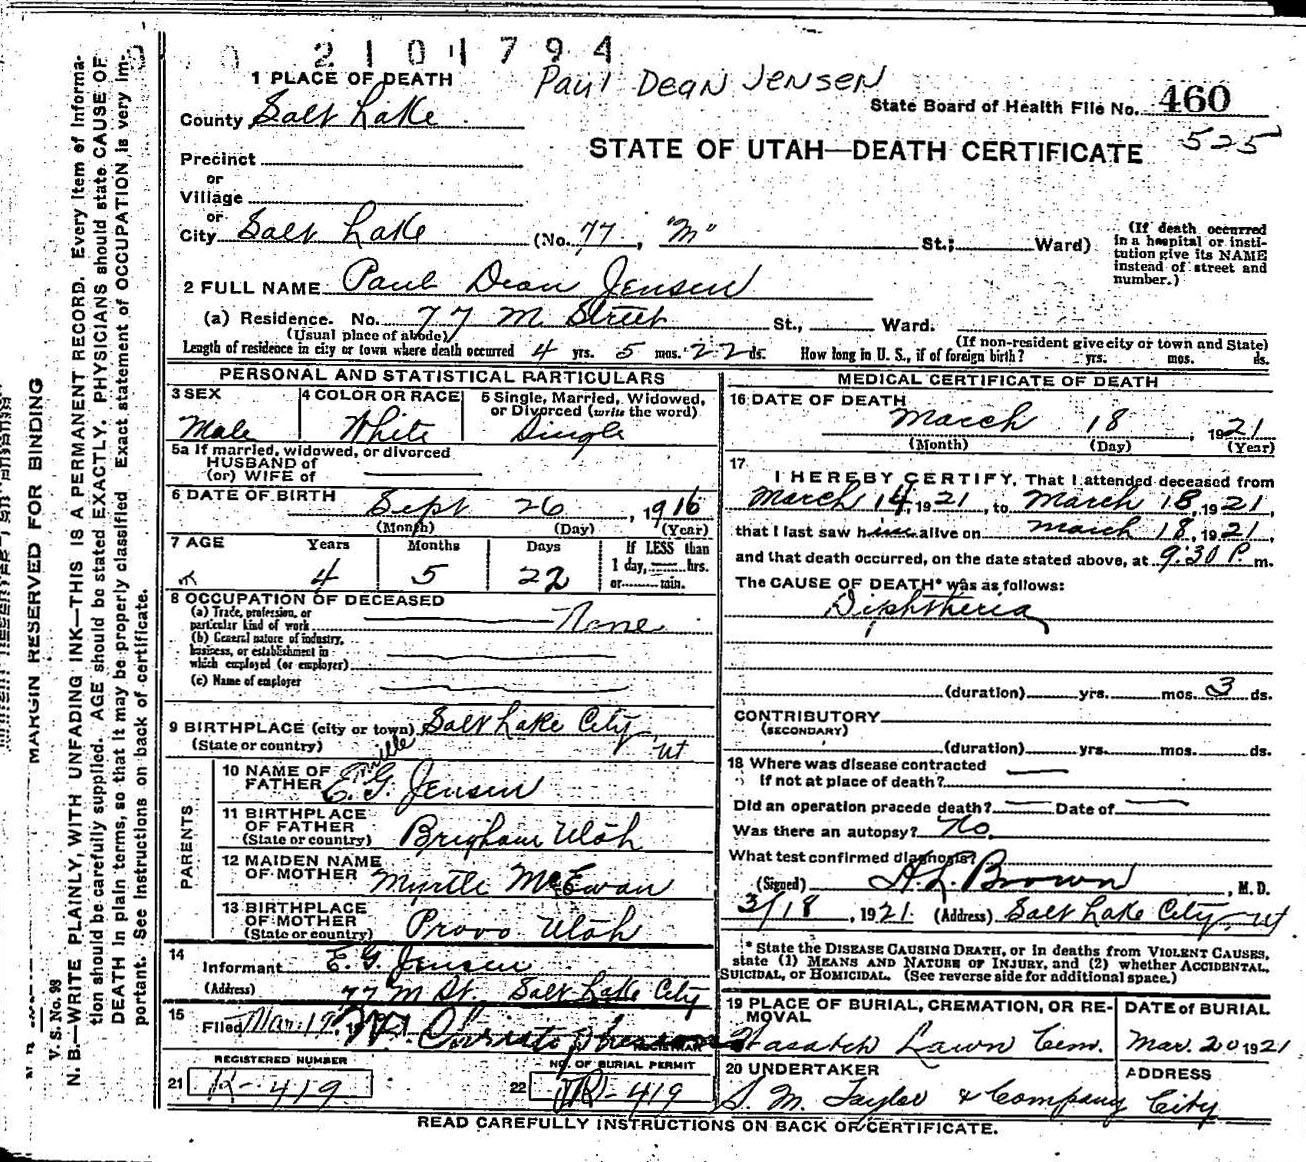 2101794
Paul Dean Jensen
1 PLACE OF DEATH
State Board of Health File No. 460
525
County Salt Lake
STATE OF UTAH—DEATH CERTIFICATE
Precinct
or
Village
or
City Salt Lake (No. 77, "M" St.; Ward)
(If death occurred in a hospital or institution give its NAME instead of street and number.)
2 FULL NAME Paul Dean Jensen
(a) Residence. No. 77 M Street St., Ward.
(Usual place of abode) (If non-resident give city or town and State)
Length of residence in city or town where death occurred 4 yrs. 5 mos. 22 ds. How long in U. S., if of foreign birth? yrs. mos. ds.
PERSONAL AND STATISTICAL PARTICULARS
3 SEX
Male
4 COLOR OR RACE
White
5 Single, Married, Widowed, or Divorced (write the word)
Single
5a If married, widowed, or divorced
HUSBAND of
(or) WIFE of
6 DATE OF BIRTH
Sept 26, 1916
(Month) (Day) (Year)
7 AGE Years Months Days
4 5 22
If LESS than
1 day, hrs.
or min.
8 OCCUPATION OF DECEASED
(a) Trade, profession, or
particular kind of work None
(b) General nature of industry,
business, or establishment in
which employed (or employer)
(c) Name of employer
9 BIRTHPLACE (city or town) Salt Lake City
(State or country) Ut
PARENTS
10 NAME OF FATHER E. G. Jensen
11 BIRTHPLACE OF FATHER
(State or country) Brigham Utah
12 MAIDEN NAME OF MOTHER Myrtle McEwan
13 BIRTHPLACE OF MOTHER
(State or country) Provo Utah
14
Informant E. G. Jensen
(Address) 77 M St. Salt Lake City
15
Filed Mar. 19
REGISTRAR
REGISTERED NUMBER
21 R-419
NO. OF BURIAL PERMIT
22 R-419
MEDICAL CERTIFICATE OF DEATH
16 DATE OF DEATH
March 18, 1921
(Month) (Day) (Year)
17
I HEREBY CERTIFY, That I attended deceased from
March 14, 1921, to March 18, 1921,
that I last saw him alive on March 18, 1921,
and that death occurred, on the date stated above, at 9:30 P. m.
The CAUSE OF DEATH* was as follows:
Diphtheria
(duration) yrs. mos. 3 ds.
CONTRIBUTORY
(SECONDARY)
(duration) yrs. mos. ds.
18 Where was disease contracted
If not at place of death?
Did an operation precede death? Date of
Was there an autopsy? No.
What test confirmed diagnosis?
(Signed) H. L. Brown, M. D.
3/18, 1921 (Address) Salt Lake City Ut
* State the DISEASE CAUSING DEATH, or in deaths from VIOLENT CAUSES,
state (1) MEANS AND NATURE OF INJURY, and (2) whether ACCIDENTAL,
SUICIDAL, or HOMICIDAL. (See reverse side for additional space.)
19 PLACE OF BURIAL, CREMATION, OR REMOVAL
Wasatch Lawn Cem.
DATE OF BURIAL
Mar. 20 1921
20 UNDERTAKER
S. M. Taylor & Company
ADDRESS
City
READ CAREFULLY INSTRUCTIONS ON BACK OF CERTIFICATE.
MARGIN RESERVED FOR BINDING
V. S. No. 98
N. B.—WRITE PLAINLY, WITH UNFADING INK—THIS IS A PERMANENT RECORD. Every item of informa-
tion should be carefully supplied. AGE should be stated EXACTLY. PHYSICIANS should state CAUSE OF
DEATH in plain terms, so that it may be properly classified. Exact statement of OCCUPATION is very im-
portant. See instructions on back of certificate.